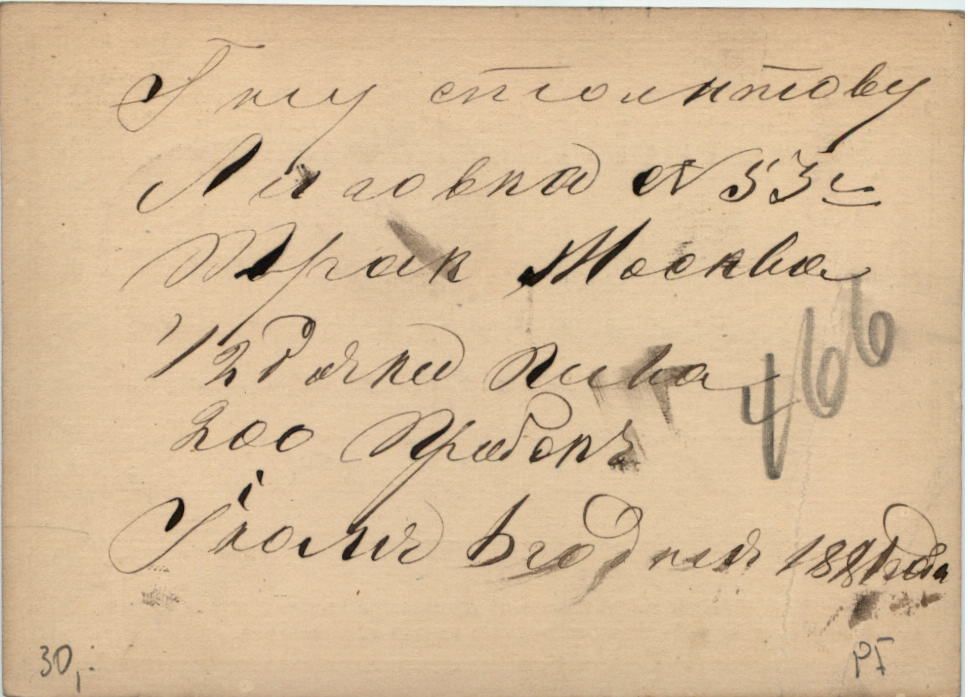 Г ну столитову
Лиговка № 53
Трак Москва
1/2 Бочки Пива
200 Пробокъ
Июля 6 годня 1881 года
466
30,-